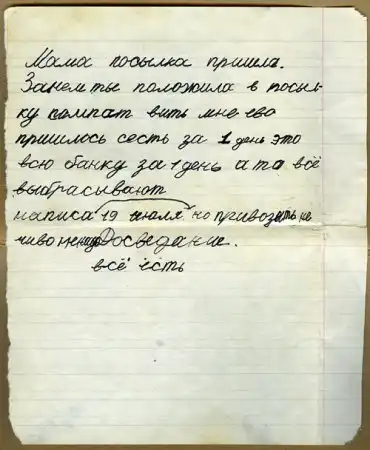 Мама посылка пришла.
Зачем ты положила в посыл-
ку компат вить мне ево
пришлось сесть за 1 день это
всю банку за 1 день а то всё
выбрасывают
написа 19 июля но привозить не
чиво Досведание.
всё есть